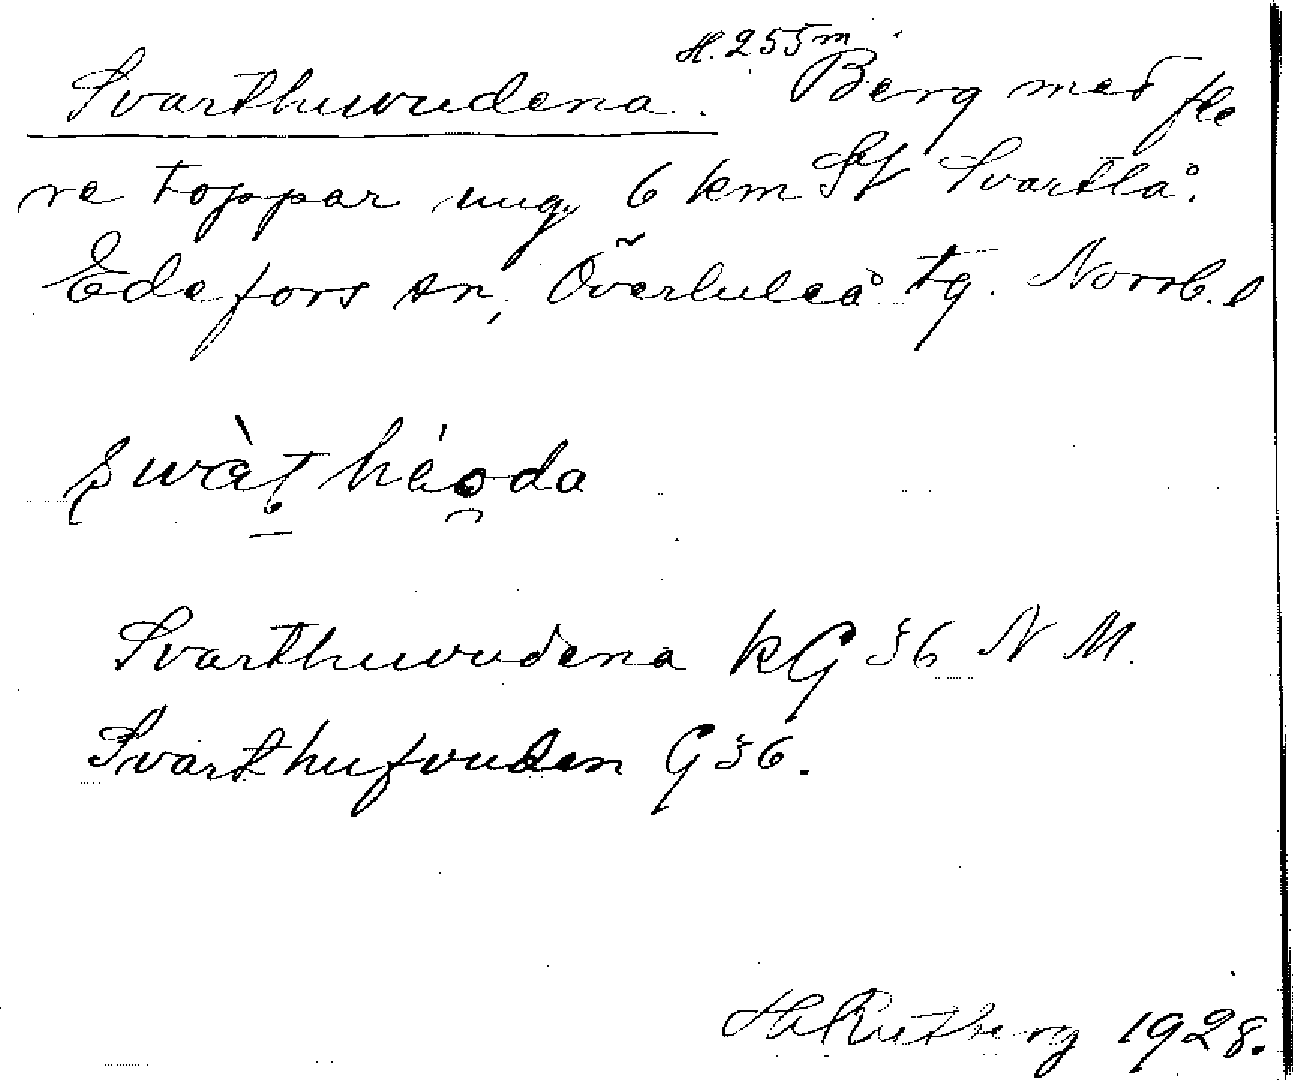 Svarthuvudena. H. 255 m Berg med fle
re toppar ung. 6 km SV Svartlå.
Edefors sn, Överluleå tg. Norrb. l
Svarthuvudena kG 36 N M.
Svarthufvuden G 36.
H Rutberg 1928.